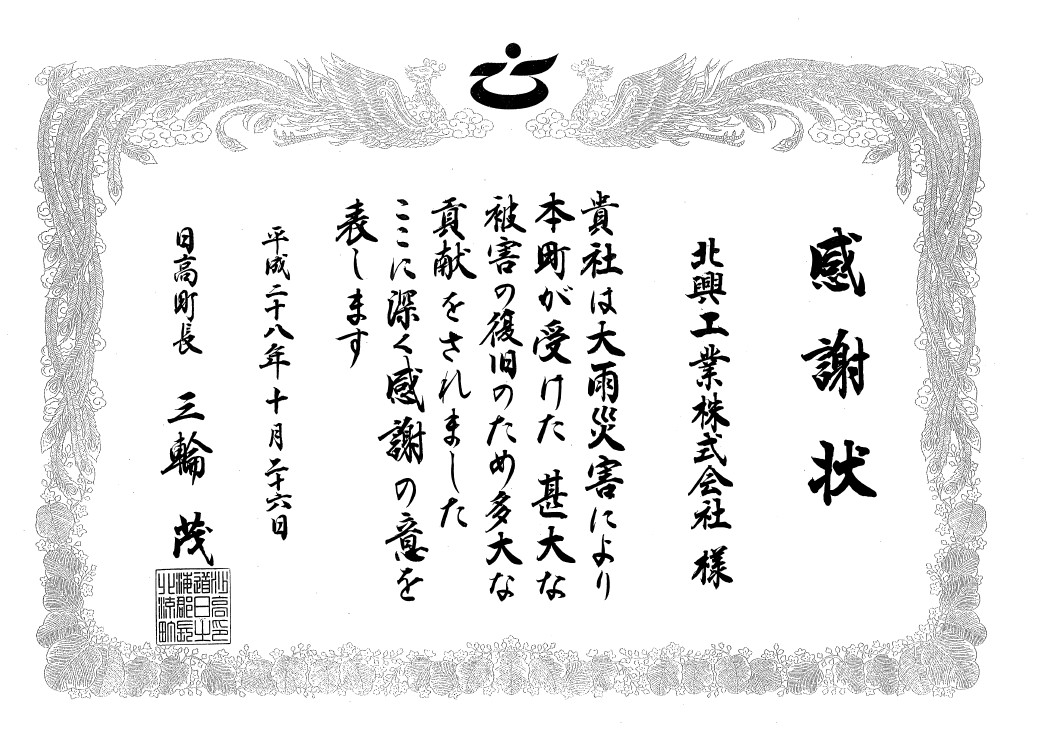 感謝状
北興工業株式会社 様
貴社は大雨災害により
本町が受けた 甚大な
被害の復旧のため多大な
貢献をされました
ここに深く感謝の意を
表します
平成二十八年十月二十六日
日高町長 三輪 茂